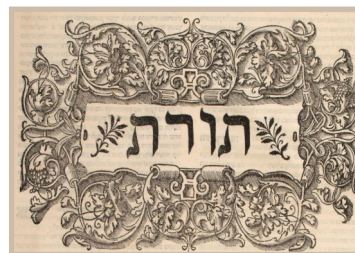 תורת